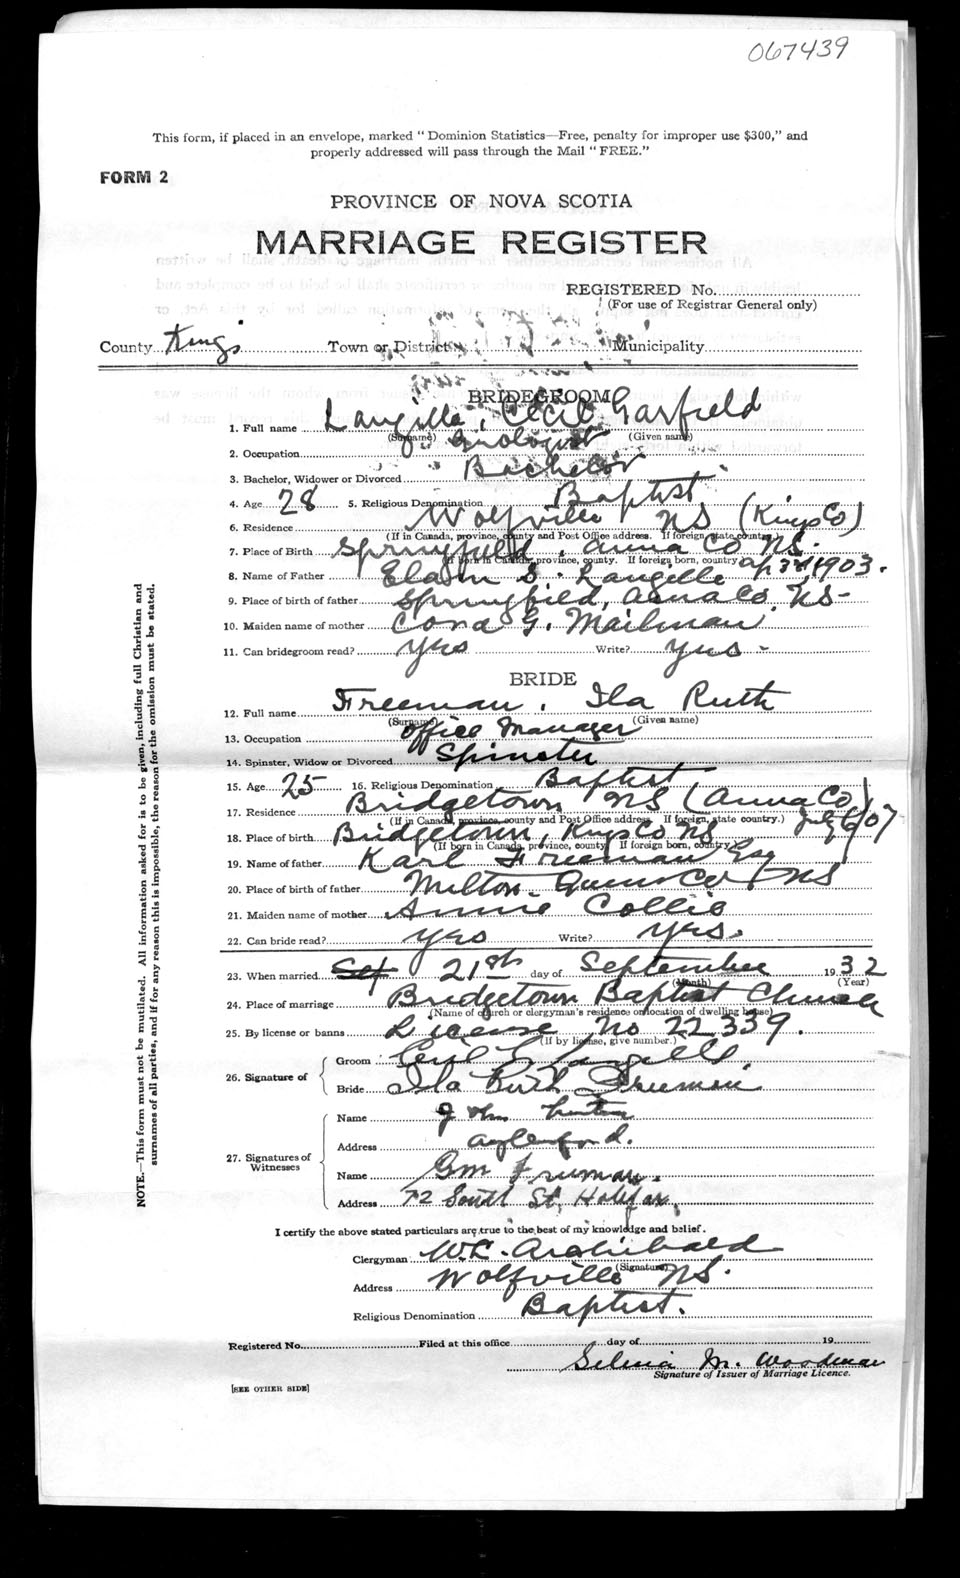 067439
This form, if placed in an envelope, marked " Dominion Statistics—Free, penalty for improper use $300," and
properly addressed will pass through the Mail " FREE."
FORM 2
PROVINCE OF NOVA SCOTIA
MARRIAGE REGISTER
REGISTERED No.
(For use of Registrar General only)
County Kings Town or District Municipality
BRIDEGROOM
1. Full name Langille, Cecil Garfield
(Surname) (Given name)
2. Occupation
3. Bachelor, Widower or Divorced Bachelor
4. Age 28 5. Religious Denomination Baptist
6. Residence Wolfville NS (Kings Co)
(If in Canada, province, county and Post Office address. If foreign, state country.)
7. Place of Birth Springfield, Anna Co NS.
(If born in Canada, province, county. If foreign, country) Ap 3rd 1903.
8. Name of Father S. Langille
9. Place of birth of father Springfield, Anna Co. NS-
10. Maiden name of mother Cora G. Mailman
11. Can bridegroom read? Yes Write? Yes -
BRIDE
12. Full name Freeman, Ila Ruth
(Surname) (Given name)
13. Occupation Office Manager
14. Spinster, Widow or Divorced Spinster
15. Age 25 16. Religious Denomination Baptist
17. Residence Bridgetown NS (Anna Co)
(If in Canada, province, county and Post Office address. If foreign, state country.) July 6/07
18. Place of birth Bridgetown, Kings Co NS
(If born in Canada, province, county. If foreign born, country.)
19. Name of father Karl Freeman Esq
20. Place of birth of father Milton. Queens Co NS
21. Maiden name of mother Annie Collie
22. Can bride read? Yes Write? Yes.
23. When married Sept 21st day of September 1932
(Month) (Year)
24. Place of marriage Bridgetown Baptist Church
(Name of church or clergyman's residence or location of dwelling house)
25. By license or banns License No 22339.
(If by license, give number.)
26. Signature of
Groom Cecil G Langille
Bride Ila Ruth Freeman
27. Signatures of Witnesses
Name John
Address Aylesford.
Name G M Freeman.
Address 72 South St. Halifax.
I certify the above stated particulars are true to the best of my knowledge and belief.
Clergyman W.L. Archibald
(Signature)
Address Wolfville NS.
Religious Denomination Baptist.
Registered No. Filed at this office day of 19
Selina M. Woodman
Signature of Issuer of Marriage Licence.
[SEE OTHER SIDE]
NOTE.—This form must not be mutilated. All information asked for is to be given, including full Christian and
surnames of all parties, and if for any reason this is impossible, the reason for the omission must be stated.